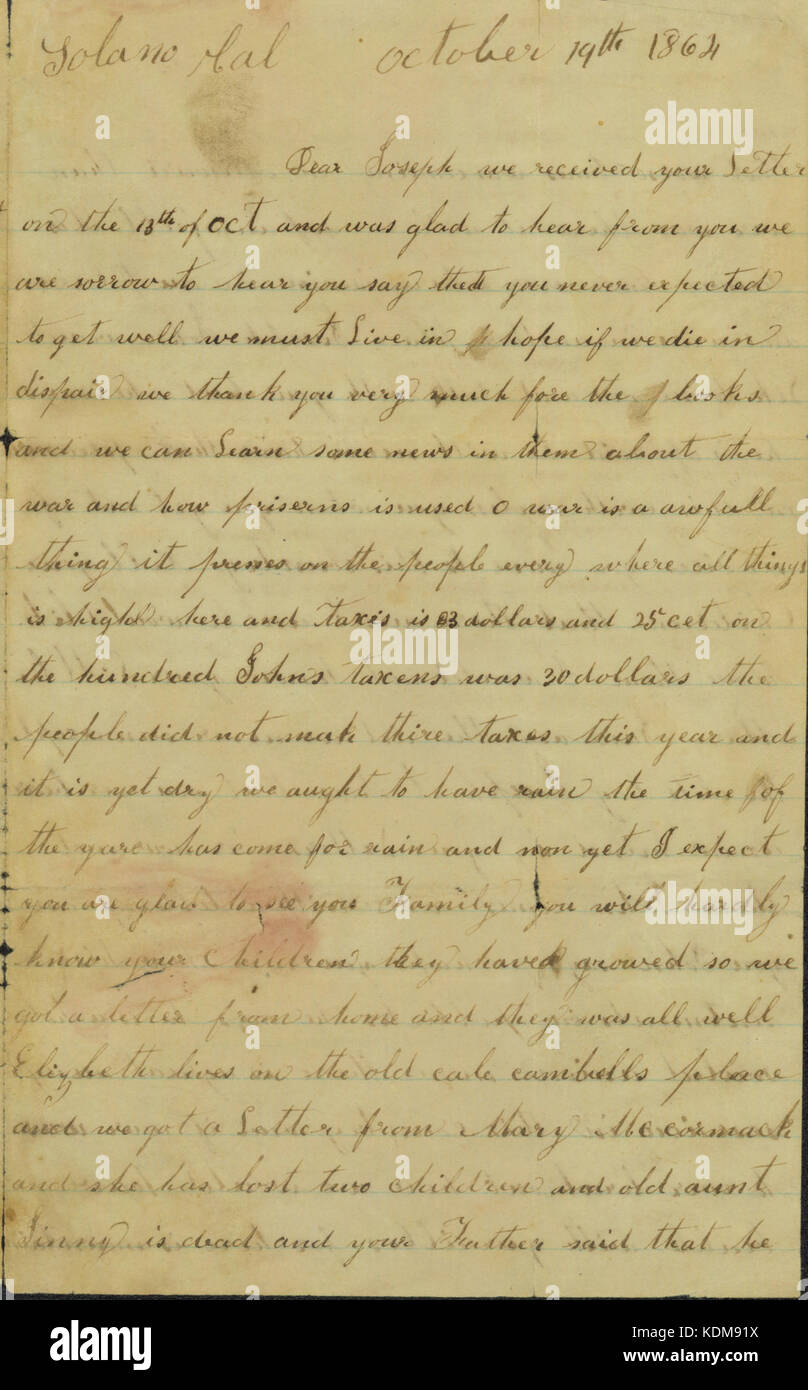 Solano Cal October 19th 1864
Dear Joseph we received your Letter
on the 13th of oct and was glad to hear from you we
are sorrow to hear you say that you never expected
to get well we must Live in hope if we die in
dispair we thank you very much fore the books
and we can Learn some news in them about the
war and how priserns is used O war is a awfull
thing it preses on the people every where all things
is high here and taxis is 3 dollars and 25 cet on
the hundred Johns taxens was 30 dollars the
people did not mak thire taxes this year and
it is yet dry we aught to have rain the time of
the yare has come for rain and non yet I expect
you are glad to see you Family you will hardly
know your Children they have growed so we
got a letter from home and they was all well
Elizbeth lives on the old cale cambells place
and we got a Letter from Mary Mc cormack
and she has lost two children and old aunt
Jinny is dead and your Father said that he
alamy stock photo
alamy
Image ID: KDM91X
www.alamy.com